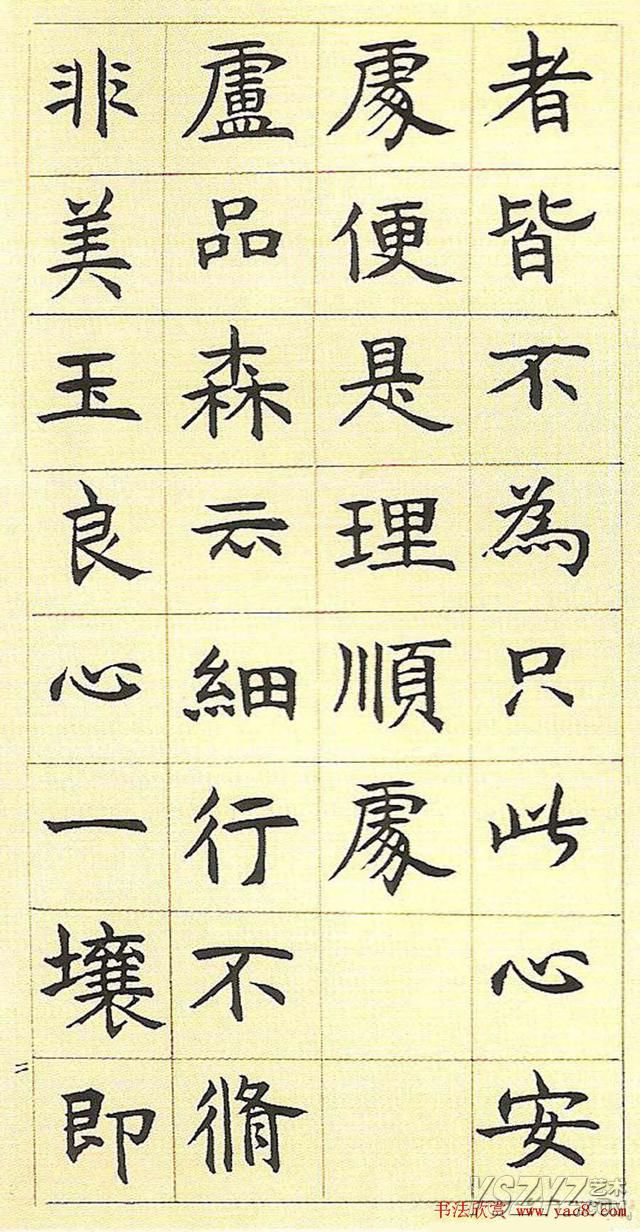 者皆不為只此心安
處便是理順處
盧品森云細行不脩
非美玉良心一壤即
二
艺术
书法欣赏 www.yac8.com